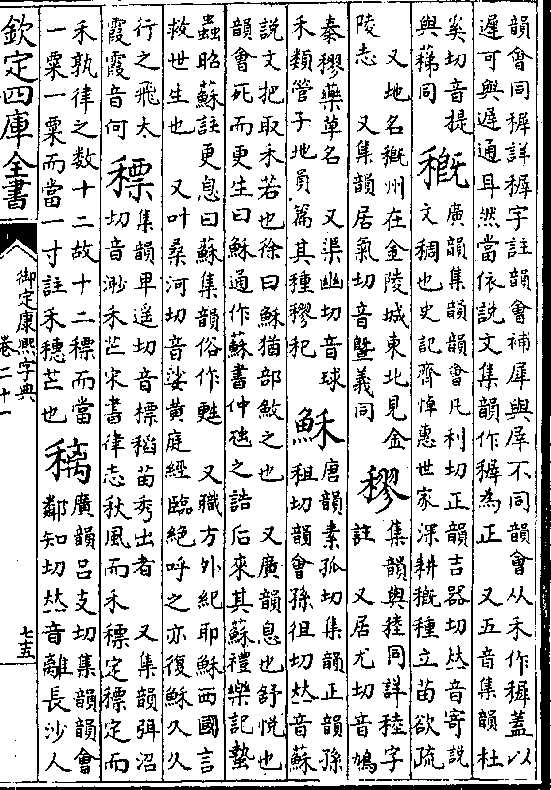 韻會同穉詳穉字註韻會補犀與犀不同韻會从禾作穉蓋以
遲可與遟通耳然當依說文集韻作穉為正 又五音集韻杜
奚切音提
與䅠同
穊
廣韻集韻韻會几利切正韻吉器切𠀤音寄說
文稠也史記齊悼惠世家深耕穊種立苗欲疏
又地名穊州在金陵城東北見金
陵志 又集韻居氣切音曁義同
穋
集韻與稑同詳稑字
註 又居尤切音鳩
秦穋藥草名 又渠幽切音球
禾類管子地員篇其種穋杞
穌
唐韻素孤切集韻正韻孫
租切韻會孫徂切𠀤音蘇
說文把取禾若也徐曰穌猶部斂之也 又廣韻息也舒悅也
韻會死而更生曰穌通作蘇書仲虺之誥后來其蘇禮樂記蟄
蟲昭蘇註更息曰蘇集韻俗作甦 又職方外紀耶穌西國言
救世生也 又叶桑河切音娑黄庭經臨絶呼之亦復穌久久
行之飛太
霞霞音何
䅺
集韻卑遥切音標稻苗秀出者 又集韻弭沼
切音渺禾芒宋書律志秋風而禾䅺定䅺定而
禾孰律之數十二故十二䅺而當
一粟一粟而當一寸註禾穗芒也
廣韻吕支切集韻韻會
鄰知切𠀤音離長沙人
欽定四庫全書
御定康熙字典
卷二十一
七五